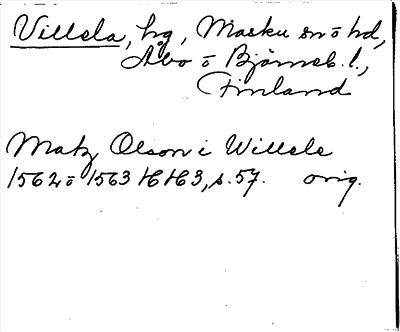 Villela, hg, Masku sn o hd,
Åbo o Björneb. l.,
Finland
Matz Olson i Willele
1562 o 1563 HH3, s. 57. orig.